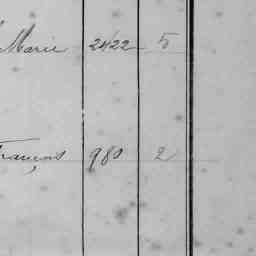 Marie 2422 5
François 980 2